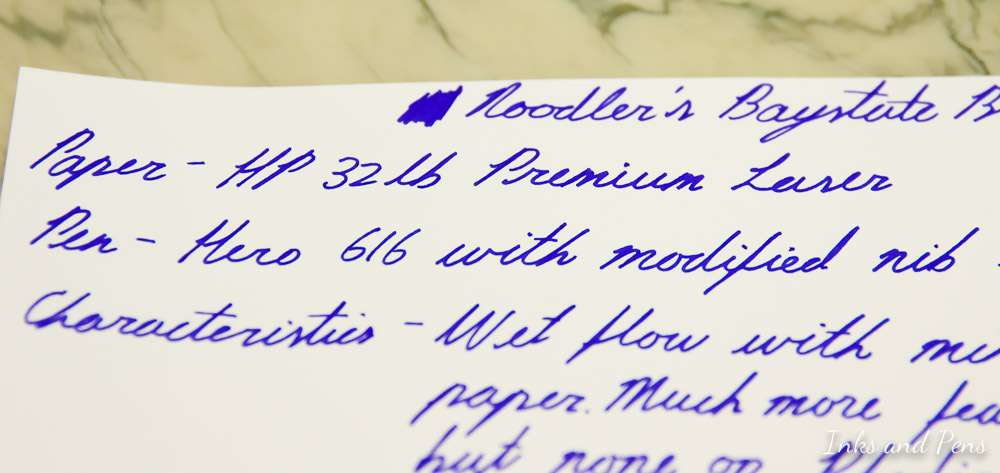 Noodler's Baystate B
Paper - HP 32lb Premium Laser
Pen - Hero 616 with modified nib
Characteristics - Wet flow with
paper. Much more
but none on
Inks and Pens